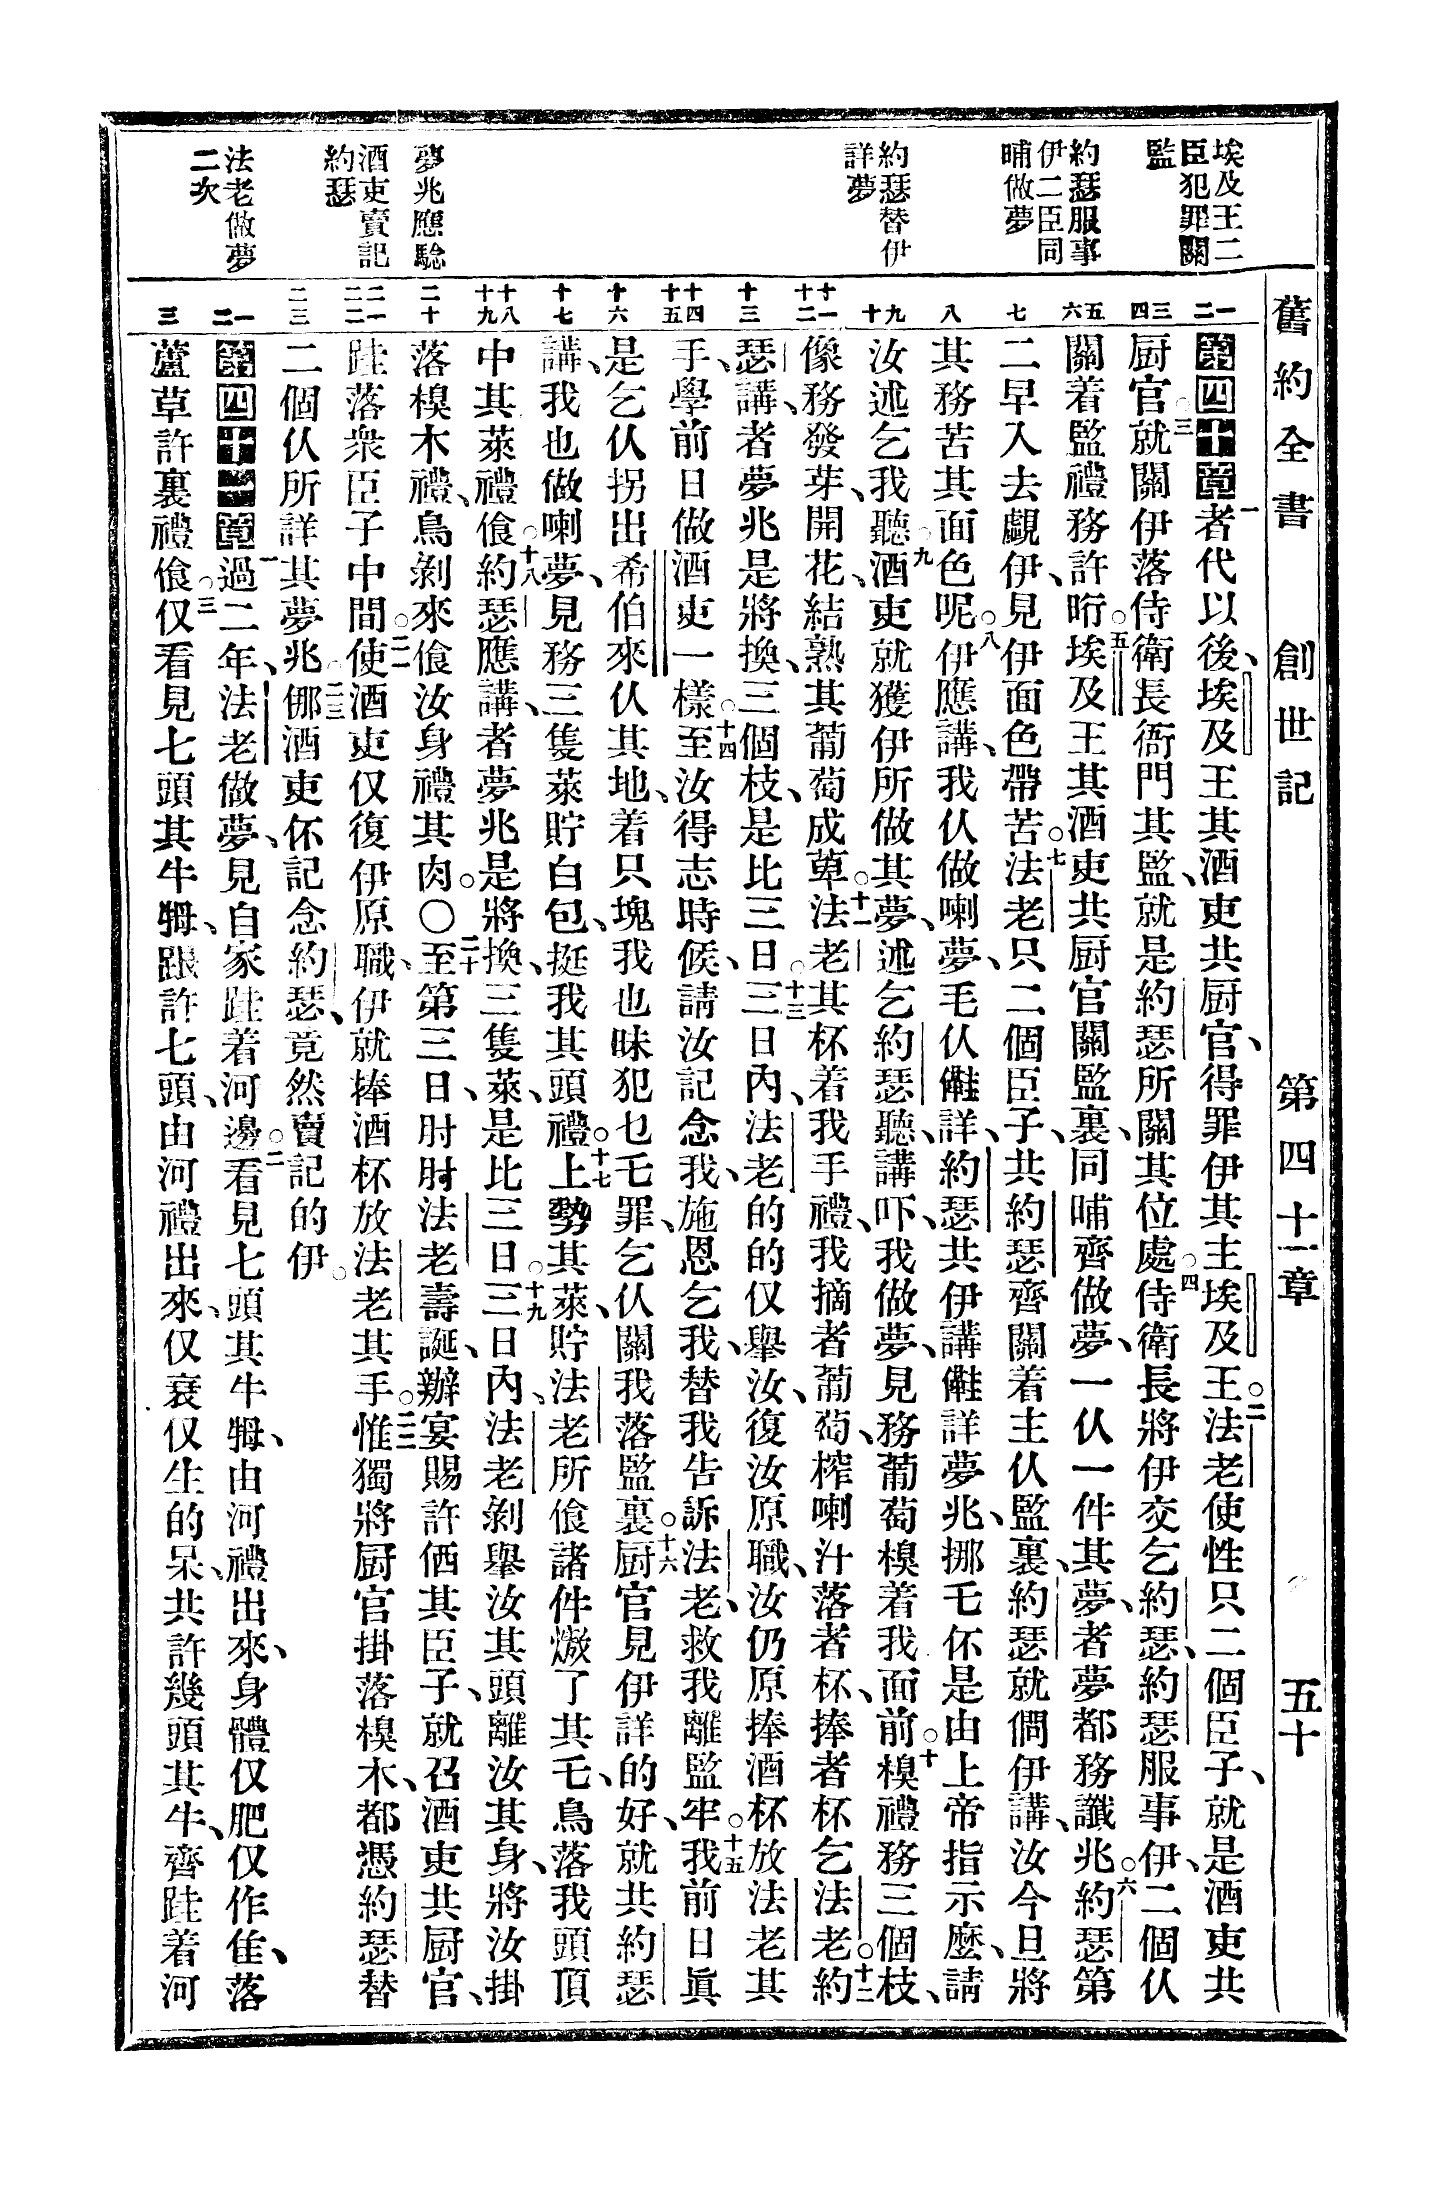 舊約全書 創世記 第四十一章 五十
埃及王二
臣犯罪關
監
約瑟服事
伊二臣同
晡做夢
約瑟替伊
詳夢
夢兆應騐
酒吏賣記
約瑟
法老做夢
二次
第四十章一者代以後、埃及王其酒吏共厨官、得罪伊其主埃及王。二法老使性只二個臣子、就是酒吏共
厨官。三就關伊落侍衛長衙門其監、就是約瑟所關其位處。四侍衛長將伊交乞約瑟、約瑟服事伊、二個仈
關着監禮務許晌。五埃及王其酒吏共厨官關監裏、同晡齊做夢、一仈一件其夢、者夢都務讖兆。六約瑟第
二早入去覷伊、見伊面色帶苦。七法老只二個臣子、共約瑟齊關着主仈監裏、約瑟就僩伊講、汝今旦將
其務苦其面色呢。八伊應講、我仈做喇夢、毛仈㒕詳、約瑟共伊講㒕詳夢兆、挪毛伓是由上帝指示麼、請
汝述乞我聽。九酒吏就獲伊所做其夢、述乞約瑟聽、講吓、我做夢、見務葡萄槼着我面前。十槼禮務三個枝、
像務發芽、開花、結熟其葡萄成蕇。十一法老其杯着我手禮、我摘者葡萄、榨喇汁落者杯、捧者杯乞法老。十二約
瑟講、者夢兆是將換、三個枝、是比三日。十三三日內、法老的的仅舉汝、復汝原職、汝仍原捧酒杯放法老其
手、學前日做酒吏一樣。十四至汝得志時候、請汝記念我、施恩乞我、替我告訴法老、救我離監牢。十五我前日眞
是乞仈拐出希伯來仈其地、着只塊我也昧犯乜乇罪、乞仈關我落監裏。十六厨官見伊詳的好、就共約瑟
講、我也做喇夢、見務三隻萊貯白包、挺我其頭禮。十七上勢其萊、貯法老所飡諸件㷫了其乇、鳥落我頭頂
中其萊禮飡。十八約瑟應講、者夢兆是將換、三隻萊、是比三日。十九三日內、法老剝舉汝其頭離汝其身、將汝掛
落槼木禮、鳥剝來飡汝身禮其肉。〇二十至第三日、肘肘法老壽誕、辦宴賜許価其臣子、就召酒吏共厨官、
跬落衆臣子中間。二一使酒吏仅復伊原職、伊就捧酒杯放法老其手。二二惟獨將厨官掛落槼木、都憑約瑟替
二個仈所詳其夢兆。二三挪酒吏伓記念約瑟、竟然賣記的伊。
第四十一章一過二年、法老做夢、見自家跬着河邊。二看見七頭其牛㹇、由河禮出來、身體仅肥仅作隹、落
蘆草許裏禮飡。三仅看見七頭其牛㹇、跟許七頭、由河禮出來、仅衰仅生的呆、共許幾頭其牛、齊跬着河